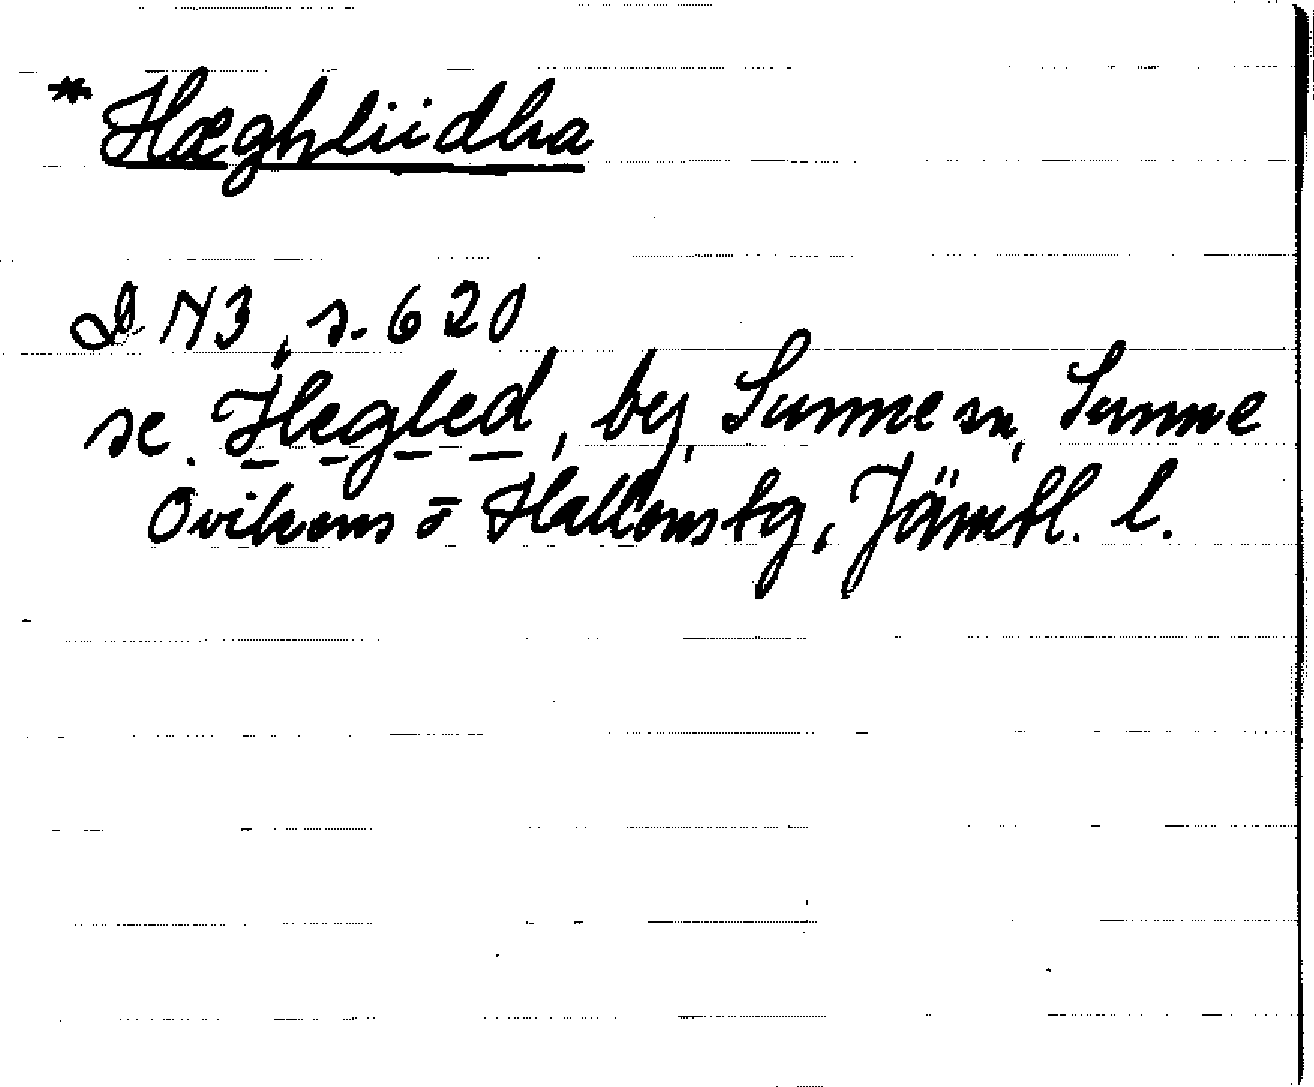 *Hæghliidha
DN3, s. 620
se Hegled, by, Sunne sn, Sunne
Ovikens o Hallens tg, Jämtl. l.